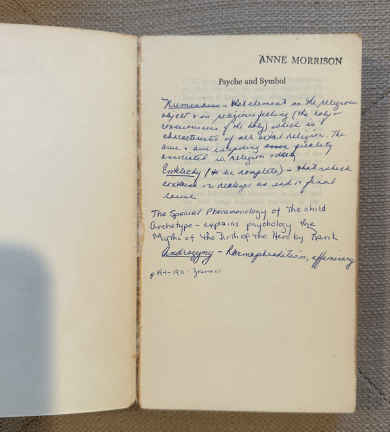 ANNE MORRISON
Psyche and Symbol
Numinous - that element in the religious
object & in religious feeling (the holy -
consciousness of the holy) which is
characteristic of all actual religion. The
awe & awe inspiring quality
in religion
Entelechy (to be complete) - that which
contains or realizes an end or final
cause
The Special Phenomenology of the Child
Archetype - explains psychology the
Myth of the Birth of the Hero by Rank
Androgyny - Hermaphroditism, effeminacy